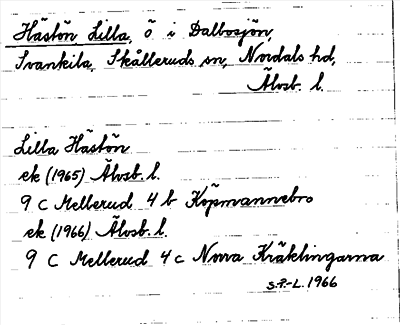 Hästön, Lilla, ö i Dalbosjön,
Svankila, Skålleruds sn, Nordals hd,
Älvsb. l.
Lilla Hästön
ek (1965) Älvsb. l.
9 C Mellerud 4 b Köpmannebro
ek (1966) Älvsb. l.
9 C Mellerud 4 c Norra Kräklingarna
S.P.-L. 1966